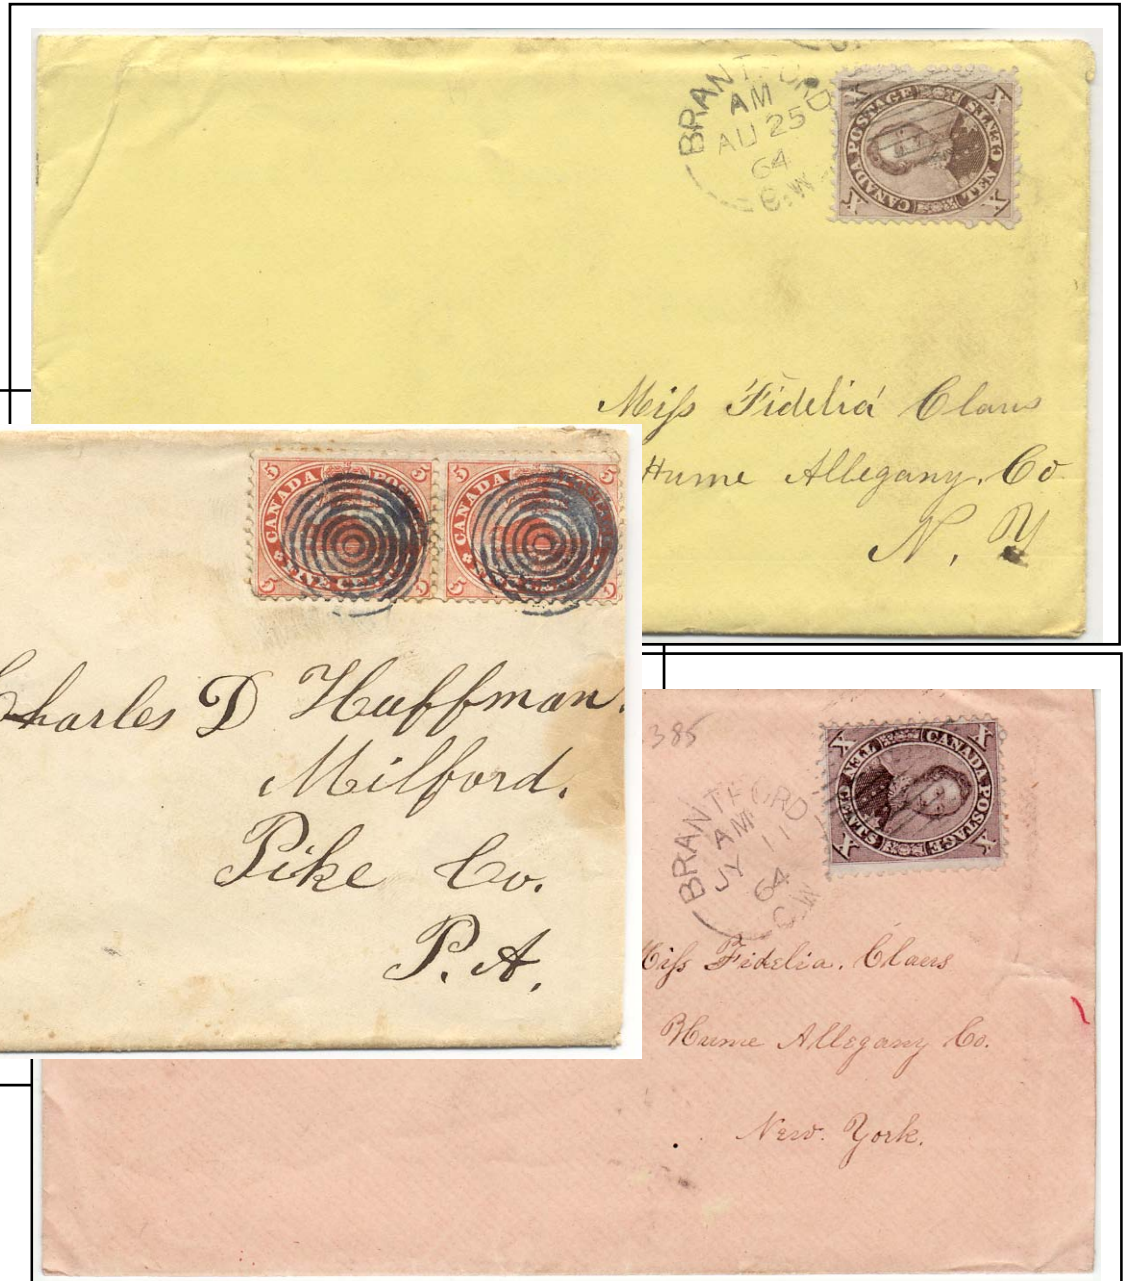 BRANTFORD
AM
AU 25
64
C.W.
X X X X
CANADA POSTAGE
TEN CENTS
Miss Fidelia Claus
Hume Allegany. Co
N. Y
5 5 5
CANADA POST
FIVE CEN
5 5 5
CANADA
Charles D Huffman.
Milford.
Pike Co.
P. A.
385
BRANTFORD
AM
JY 11
64
C.W
X X X X
CANADA POSTAGE
TEN CENTS
Miss Fidelia. Claus
Hume Allegany Co.
New. York.